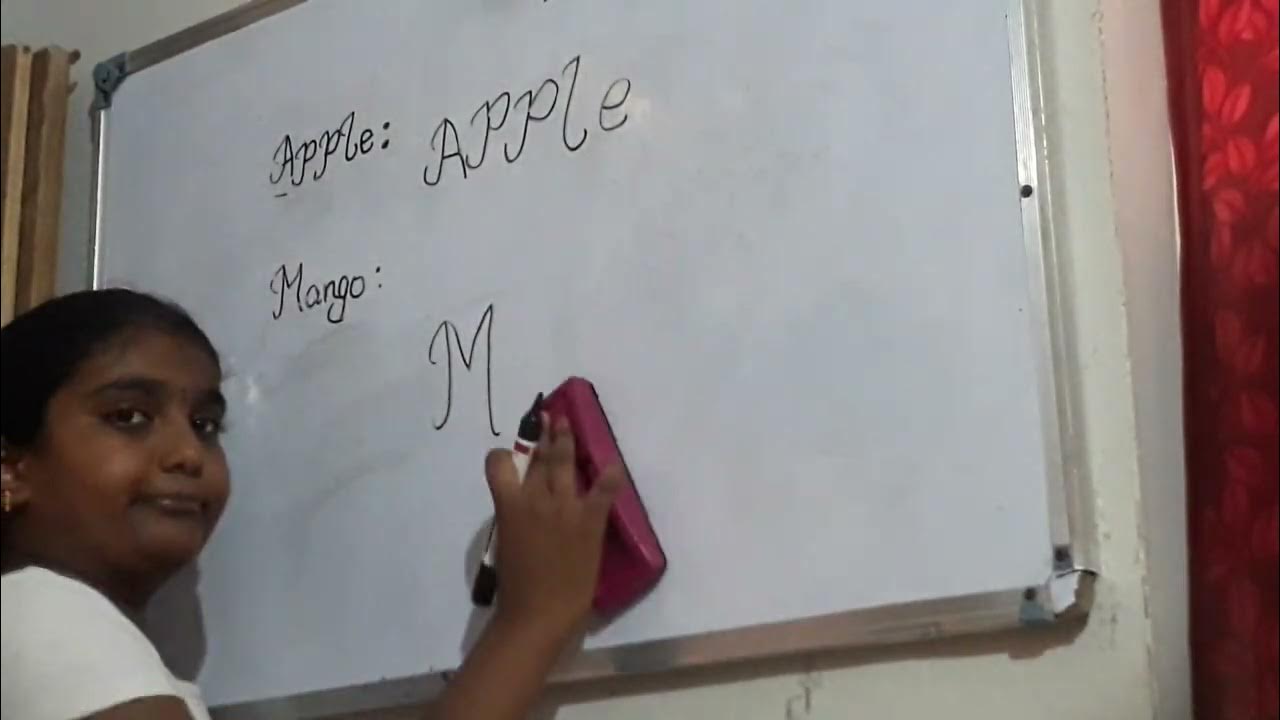 Apple: APPle
Mango:
M